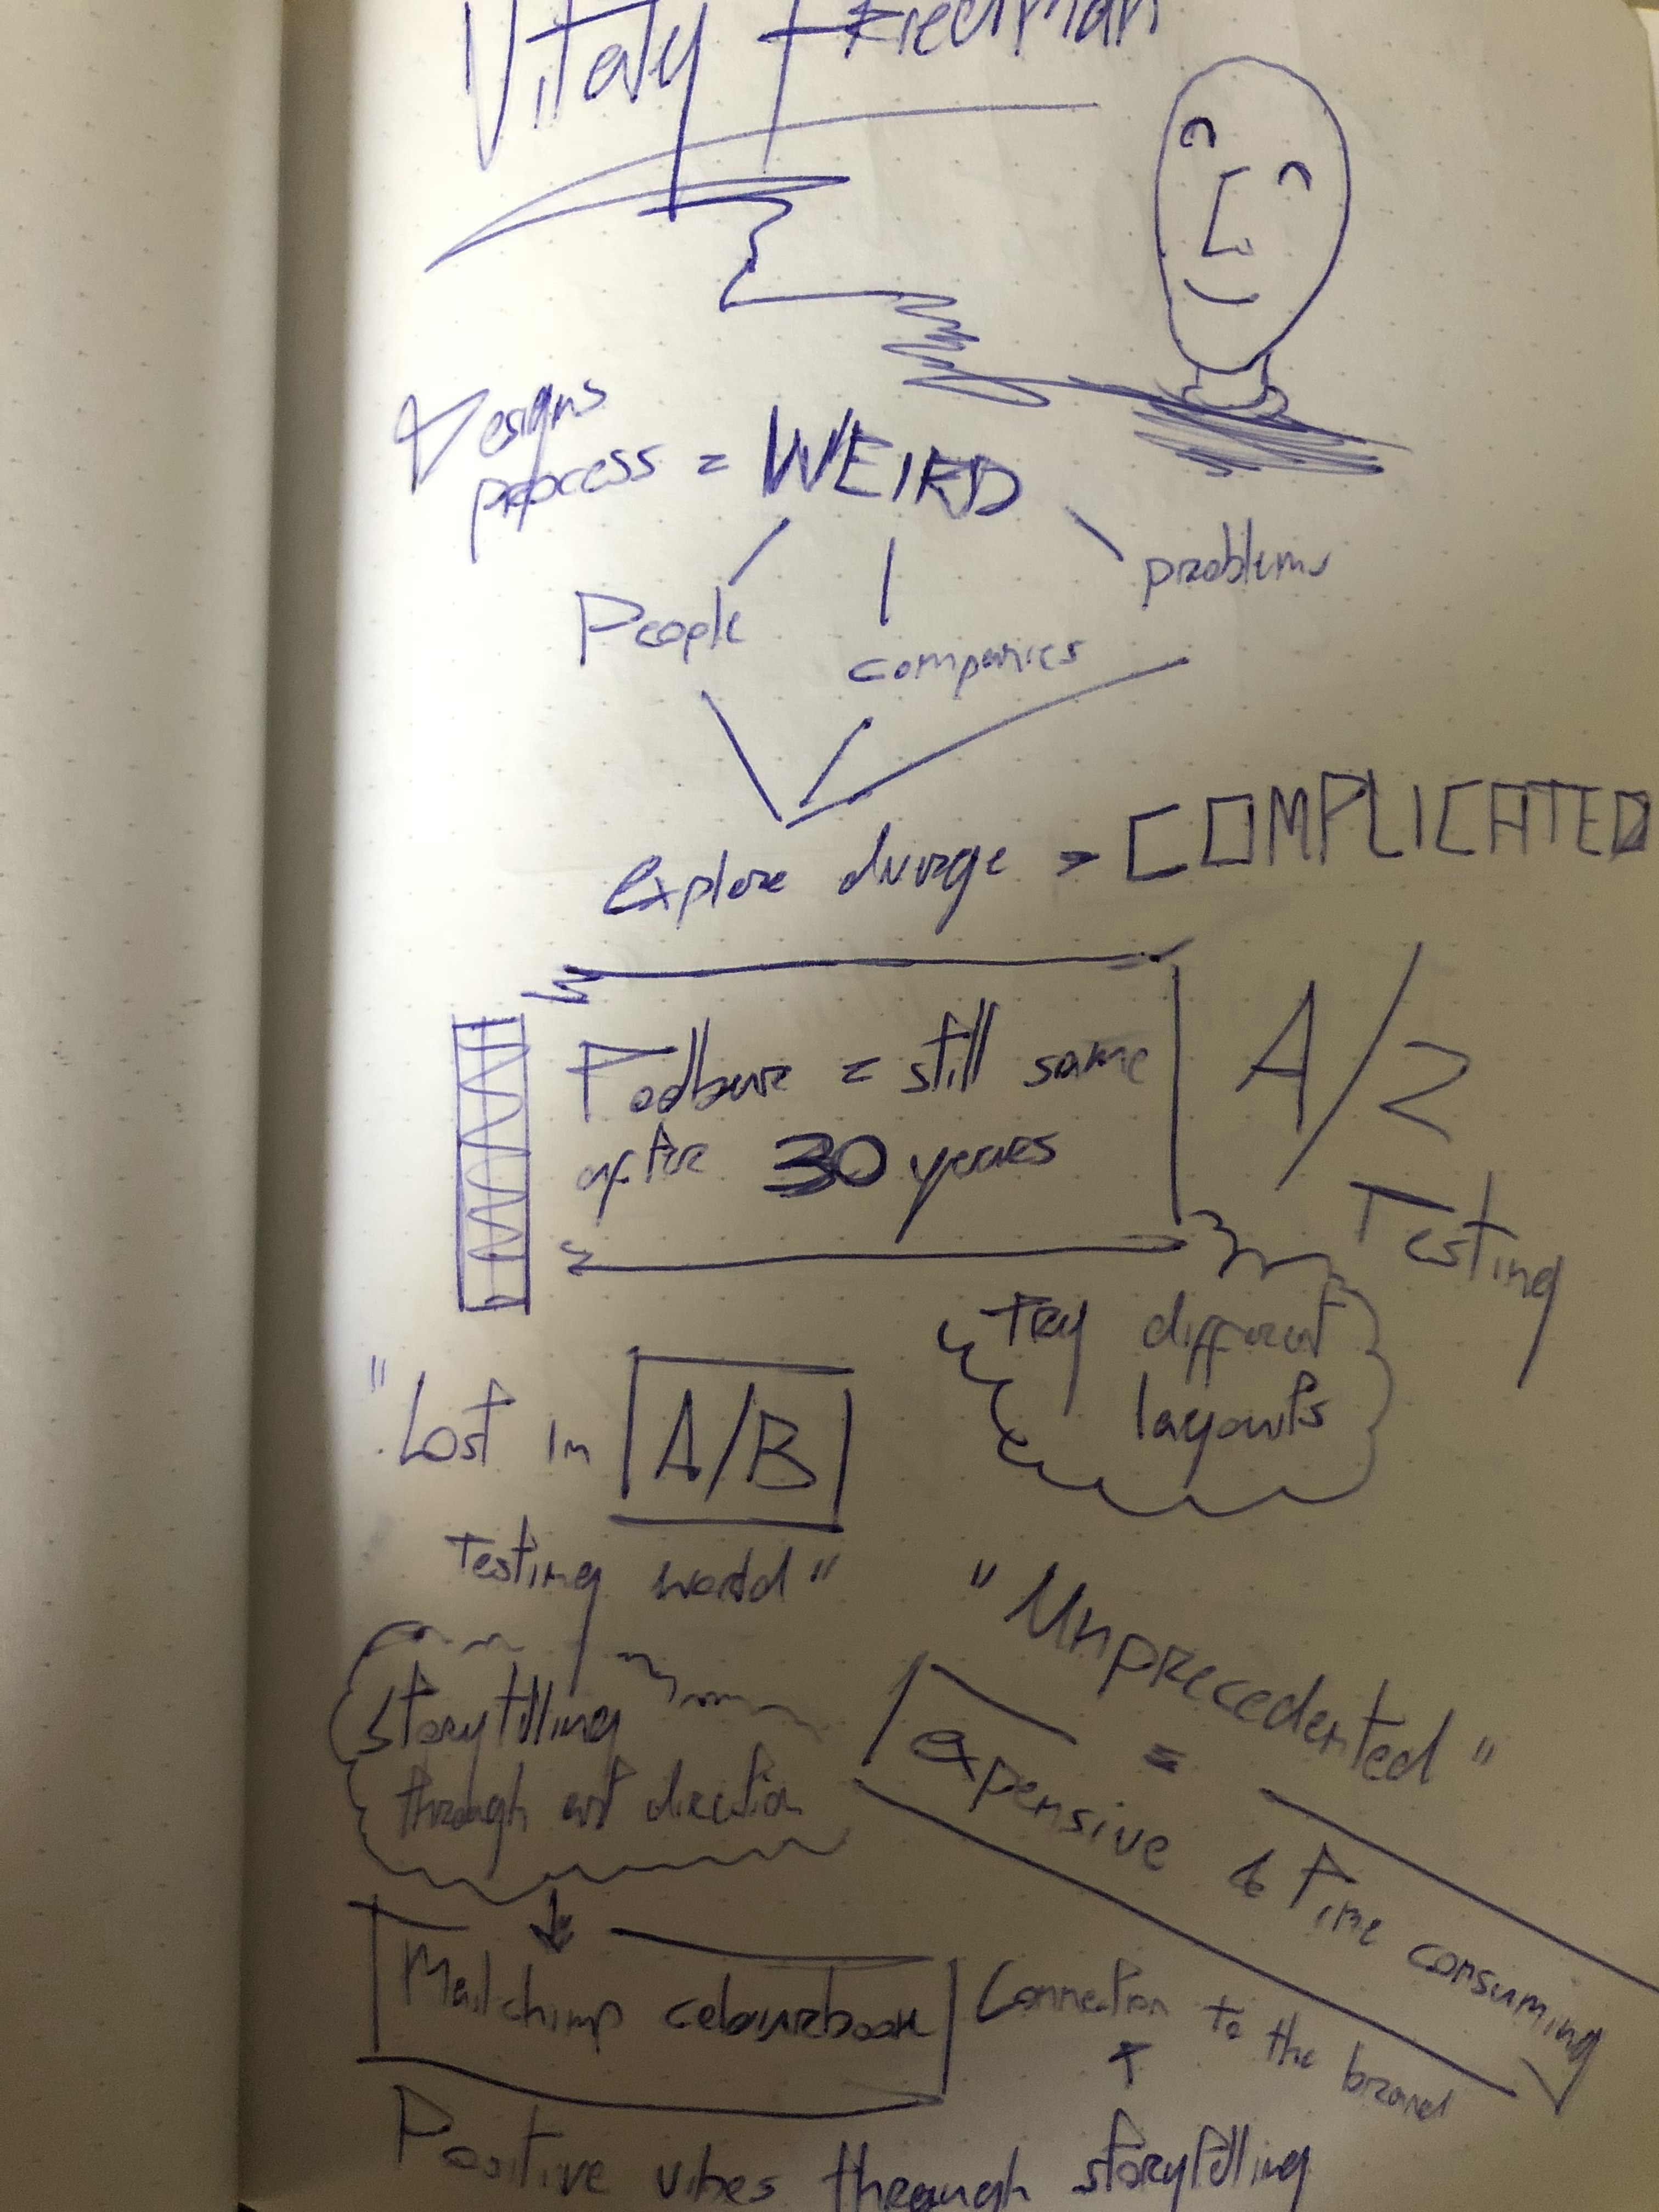 Vitaly Friedman
Designs
process = WEIRD
People
companies
problems
explore diverge > COMPLICATED
= still same
after 30 years
A/2
Testing
Try different
layouts
"Lost in A/B
Testing world"
"Unprecedented"
=
expensive & time consuming
storytelling
through art direction
Mailchimp colourbook
Connection to the brand
Positive vibes through storytelling